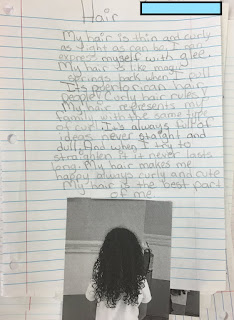 Hair
My hair is thin and curly
as tight as can be. I can
express myself with glee.
My hair is like magic
springs back when I pull
It's puertorican hair,
people! Curly hair rules!
My hair represents my
family with the same type
of curl. It's always full of
ideas never straight and
dull. And when I try to
straighten it it never lasts
for. My hair makes me
happy always curly and cute
My hair is the best part
of me.